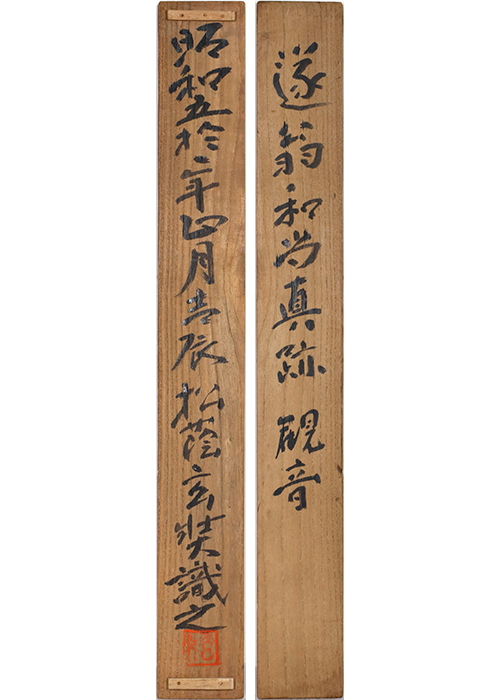 遂翁和尚真跡 観音
昭和五拾二年正月吉辰 松蔭玄奘識之